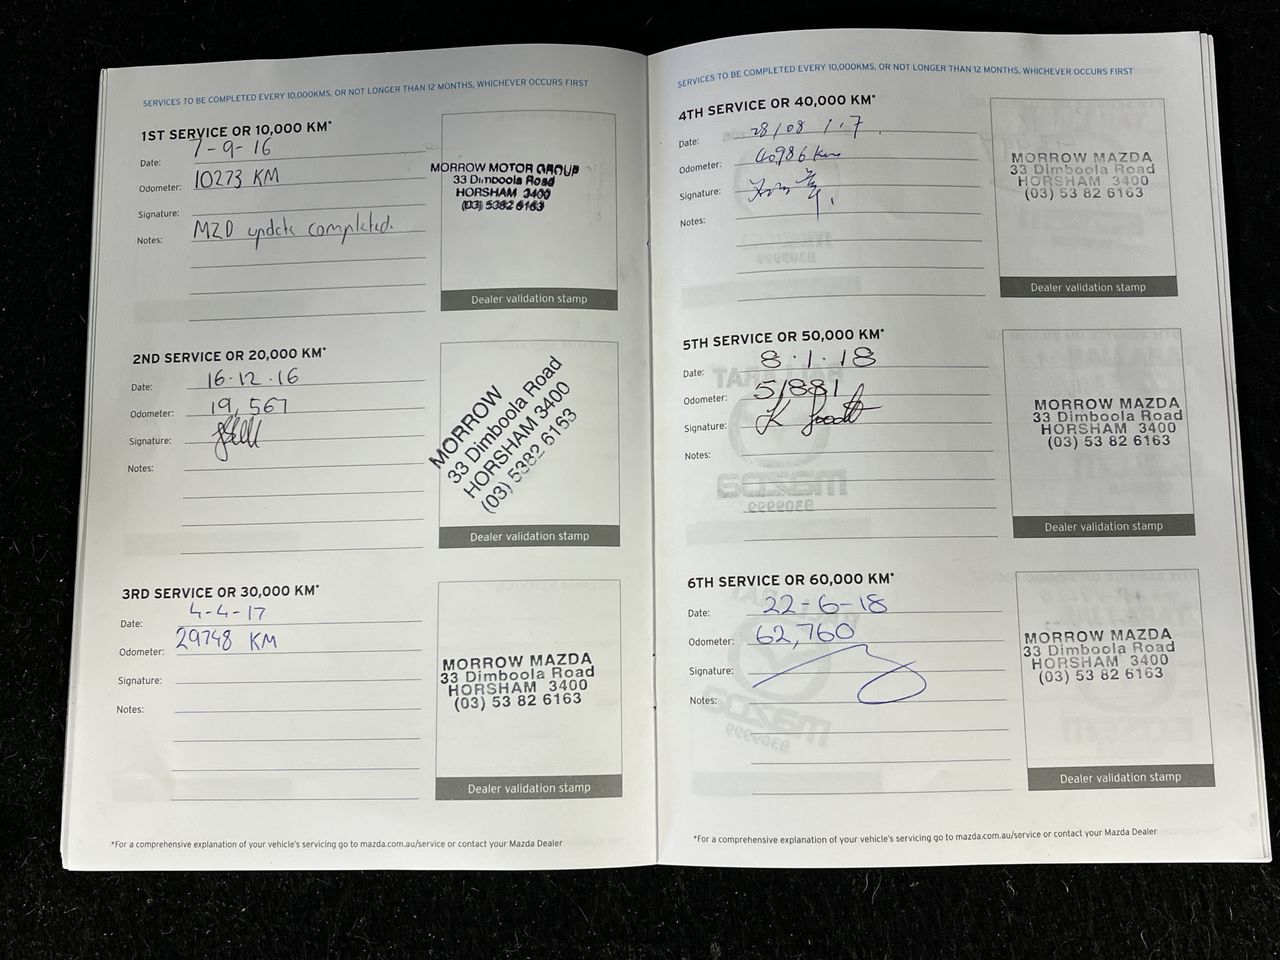 SERVICES TO BE COMPLETED EVERY 10,000KMS, OR NOT LONGER THAN 12 MONTHS, WHICHEVER OCCURS FIRST
1ST SERVICE OR 10,000 KM*
Date: 7-9-16
Odometer: 10273 KM
Signature:
Notes: MZD update completed.
MORROW MOTOR GROUP
33 Dimboola Road
HORSHAM 3400
(03) 5382 6163
Dealer validation stamp
2ND SERVICE OR 20,000 KM*
Date: 16.12.16
Odometer: 19,567
Signature:
Notes:
MORROW
33 Dimboola Road
HORSHAM 3400
(03) 5382 6163
Dealer validation stamp
3RD SERVICE OR 30,000 KM*
Date: 4-4-17
Odometer: 29748 KM
Signature:
Notes:
MORROW MAZDA
33 Dimboola Road
HORSHAM 3400
(03) 53 82 6163
Dealer validation stamp
*For a comprehensive explanation of your vehicle's servicing go to mazda.com.au/service or contact your Mazda Dealer
SERVICES TO BE COMPLETED EVERY 10,000KMS, OR NOT LONGER THAN 12 MONTHS, WHICHEVER OCCURS FIRST
4TH SERVICE OR 40,000 KM*
Date: 28/08/17.
Odometer: 40986 km
Signature:
Notes:
MORROW MAZDA
33 Dimboola Road
HORSHAM 3400
(03) 53 82 6163
Dealer validation stamp
5TH SERVICE OR 50,000 KM*
Date: 8.1.18
Odometer: 51881
Signature:
Notes:
MORROW MAZDA
33 Dimboola Road
HORSHAM 3400
(03) 53 82 6163
Dealer validation stamp
6TH SERVICE OR 60,000 KM*
Date: 22-6-18
Odometer: 62,760
Signature:
Notes:
MORROW MAZDA
33 Dimboola Road
HORSHAM 3400
(03) 53 82 6163
Dealer validation stamp
*For a comprehensive explanation of your vehicle's servicing go to mazda.com.au/service or contact your Mazda Dealer